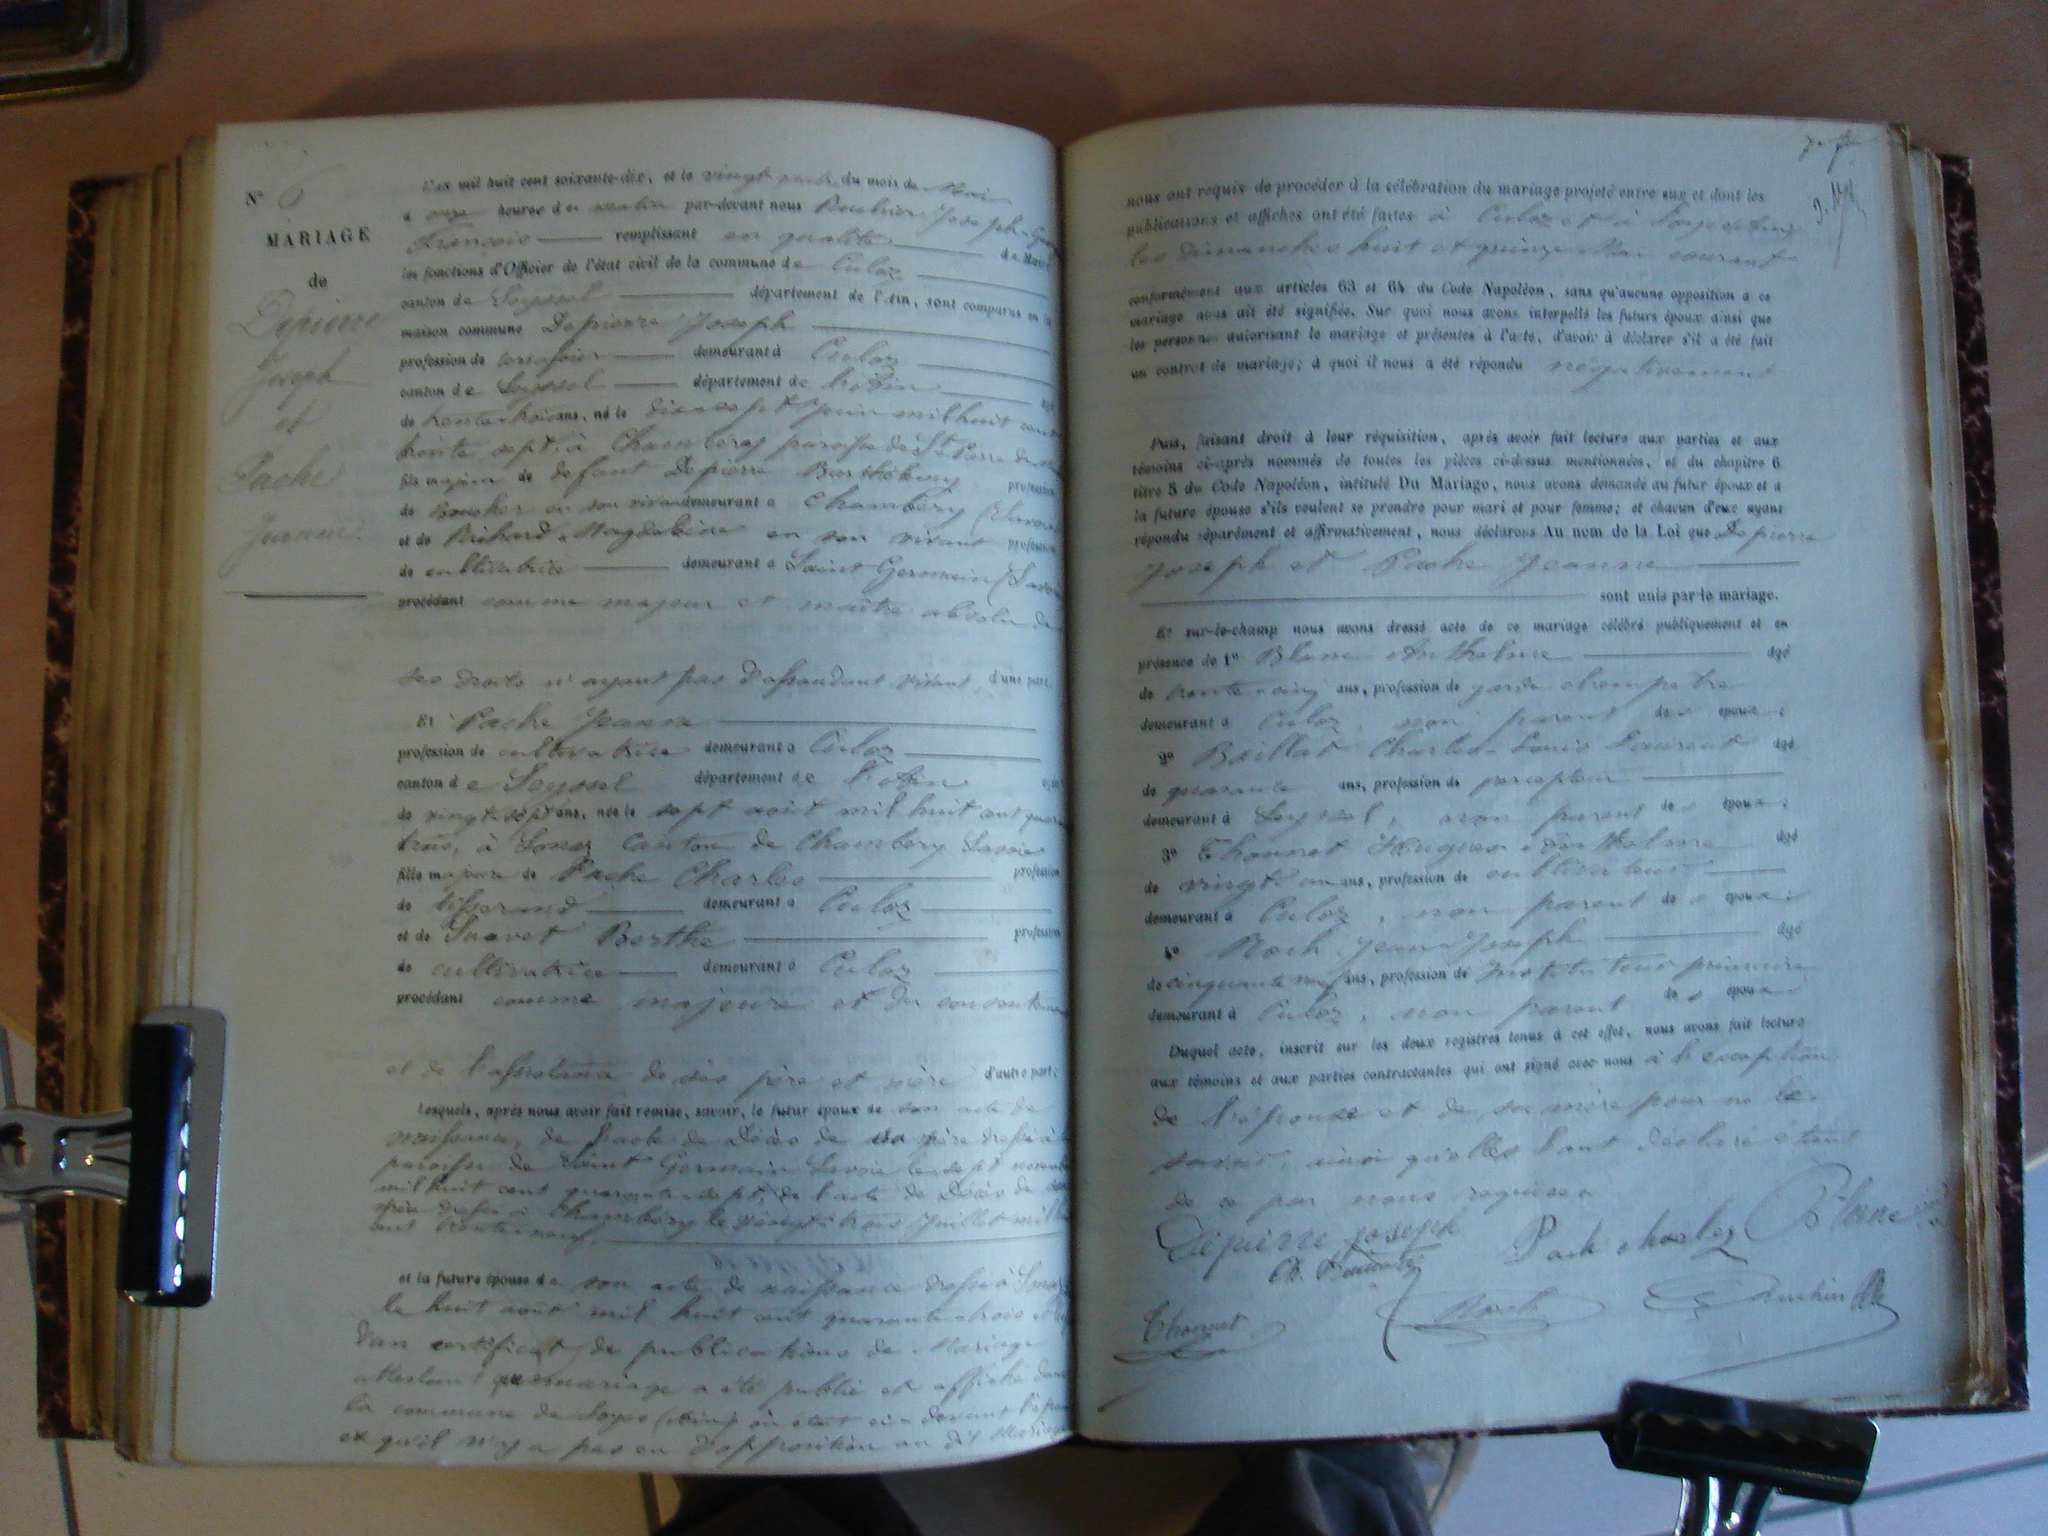 N° 6
MARIAGE
de
Depierre
Joseph
et
Pache
Jeanne.
L'an mil huit cent soixante-dix, et le vingt du mois de Mai
à onze heures du matin par-devant nous Joseph
François remplissant en qualité de Maire
les fonctions d'Officier de l'état civil de la commune de Culoz
canton de Seyssel département de l'Ain, sont comparus en la
maison commune Depierre Joseph
profession de demeurant à Culoz
canton de Seyssel département de l'Ain
de trente trois ans, né le dix sept Juin mil huit cent
trente sept, à Chambéry paroisse de St Pierre de
fils majeur de défunt Depierre Barthélemy profession
de Boucher en son vivant demeurant à Chambéry (Savoie
et de Richard Magdeleine en son vivant profession
de cultivatrice demeurant à Saint Germain (Savoie
procédant comme majeur et maître absolu de
ses droits n'ayant pas d'assendant vivant, d'une part,
Et Pache Jeanne
profession de cultivatrice demeurant à Culoz
canton de Seyssel département de l'Ain
de vingt sept ans, née le sept août mil huit cent quarante
trois, à Sonaz Canton de Chambéry Savoie
fille majeure de Pache Charles profession
de tisserand demeurant à Culoz
et de Berthe profession
de cultivatrice demeurant à Culoz
procédant comme majeure et du consentement
et de l'assistance de ses père et mère d'autre part;
Lesquels, après nous avoir fait remise, savoir, le futur époux de son acte de
naissance, de l'acte de Décès de sa mère dressé à la
paroisse de Saint Germain Savoie le sept novembre
mil huit cent quarante sept, de l'acte de Décès de son
père dressé à Chambéry le vingt trois Juillet mil huit
cent trente neuf,
et la future épouse de son acte de naissance dressé à Sonaz
le huit août mil huit cent quarante trois
d'un certificat de publications de Mariage
attestant que mariage a été publié et affiché dans
la commune de (Ain) où était ci-devant l'époux
et qu'il n'y a pas eu d'opposition au dit Mariage
nous ont requis de procéder à la célébration du mariage projeté entre eux et dont les
publications et affiches ont été faites à Culoz et à
les dimanches huit et quinze Mai courant
conformément aux articles 63 et 64 du Code Napoléon, sans qu'aucune opposition à ce
mariage nous ait été signifiée. Sur quoi nous avons interpellé les futurs époux ainsi que
les personnes autorisant le mariage et présentes à l'acte, d'avoir à déclarer s'il a été fait
un contrat de mariage; à quoi il nous a été répondu négativement
Puis, faisant droit à leur réquisition, après avoir fait lecture aux parties et aux
témoins ci-après nommés de toutes les pièces ci-dessus mentionnées, et du chapitre 6
titre 5 du Code Napoléon, intitulé Du Mariage, nous avons demandé au futur époux et à
la future épouse s'ils veulent se prendre pour mari et pour femme; et chacun d'eux ayant
répondu séparément et affirmativement, nous déclarons Au nom de la Loi que Depierre
Joseph et Pache Jeanne
sont unis par le mariage.
Et sur-le-champ nous avons dressé acte de ce mariage célébré publiquement et en
présence de 1° Blanc Anthelme âgé
de trente cinq ans, profession de garde champêtre
demeurant à Culoz, non parent des époux;
2° Baillat Charles Louis Laurent âgé
de quarante ans, profession de percepteur
demeurant à Seyssel, non parent des époux;
3° Thonnet Hugues Anthelme âgé
de vingt un ans, profession de cultivateur
demeurant à Culoz, non parent des époux;
4° Roch Jean Joseph âgé
de cinquante neuf ans, profession de Instituteur primaire
demeurant à Culoz, non parent des époux
Duquel acte, inscrit sur les deux registres tenus à cet effet, nous avons fait lecture
aux témoins et aux parties contractantes qui ont signé avec nous à l'exception
de l'épouse et de sa mère pour ne le
savoir, ainsi qu'elles l'ont déclaré étant
de ce par nous requises
Depierre Joseph Pache charles Blanc
Thonnet Roch